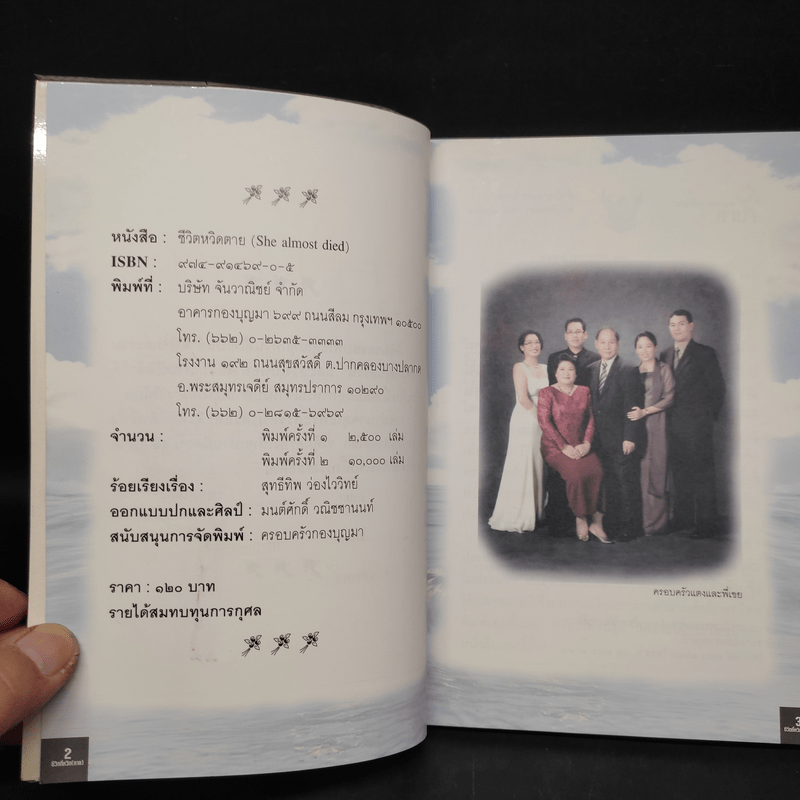 หนังสือ : ชีวิตหวิดตาย (She almost died)
ISBN : ๙๗๔-๙๑๔๖๙-๐-๕
พิมพ์ที่ : บริษัท จันวาณิชย์ จำกัด
อาคารกองบุญมา ๖๙๙ ถนนสีลม กรุงเทพฯ ๑๐๕๐๐
โทร. (๖๖๒) ๐-๒๖๓๕-๓๓๓๓
โรงงาน ๑๙๒ ถนนสุขสวัสดิ์ ต.ปากคลองบางปลากด
อ.พระสมุทรเจดีย์ สมุทรปราการ ๑๐๒๙๐
โทร. (๖๖๒) ๐-๒๘๑๕-๖๙๖๙
จำนวน : พิมพ์ครั้งที่ ๑ ๒,๕๐๐ เล่ม
พิมพ์ครั้งที่ ๒ ๑๐,๐๐๐ เล่ม
ร้อยเรียงเรื่อง : สุทธีทิพ ว่องไววิทย์
ออกแบบปกและศิลป์ : มนต์ศักดิ์ วณิชชานนท์
สนับสนุนการจัดพิมพ์ : ครอบครัวกองบุญมา
ราคา : ๑๒๐ บาท
รายได้สมทบทุนการกุศล
2
ครอบครัวแตงและพี่เขย
3